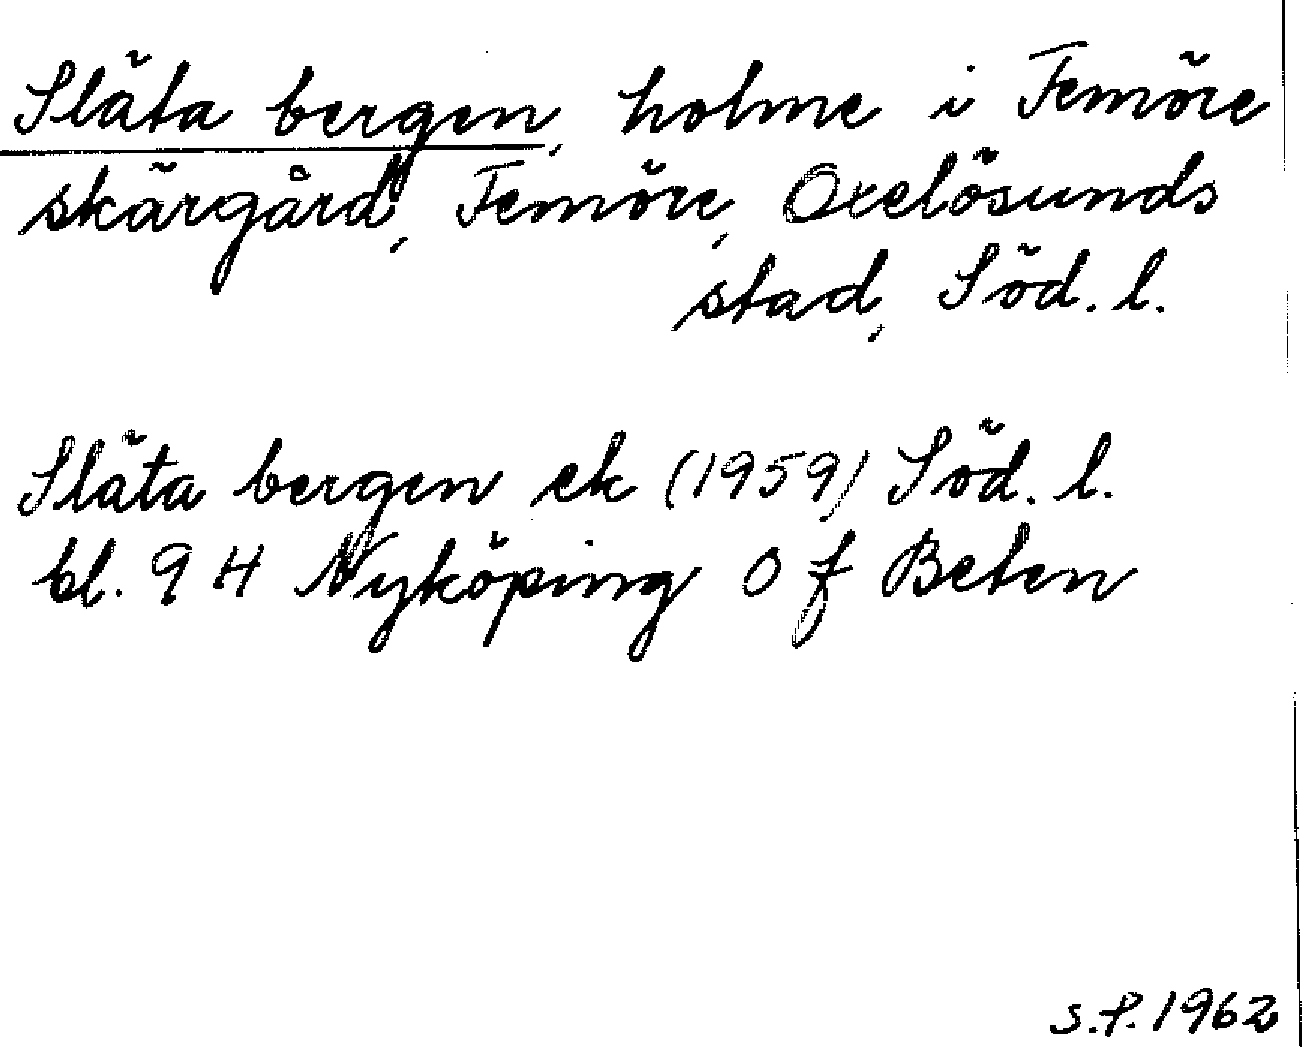 Släta bergen, holme i Femöre
skärgård, Femöre, Oxelösunds
stad, Söd. l.
Släta bergen ek (1959) Söd. l.
bl. 9 H Nyköping O f Beten
S.F. 1962